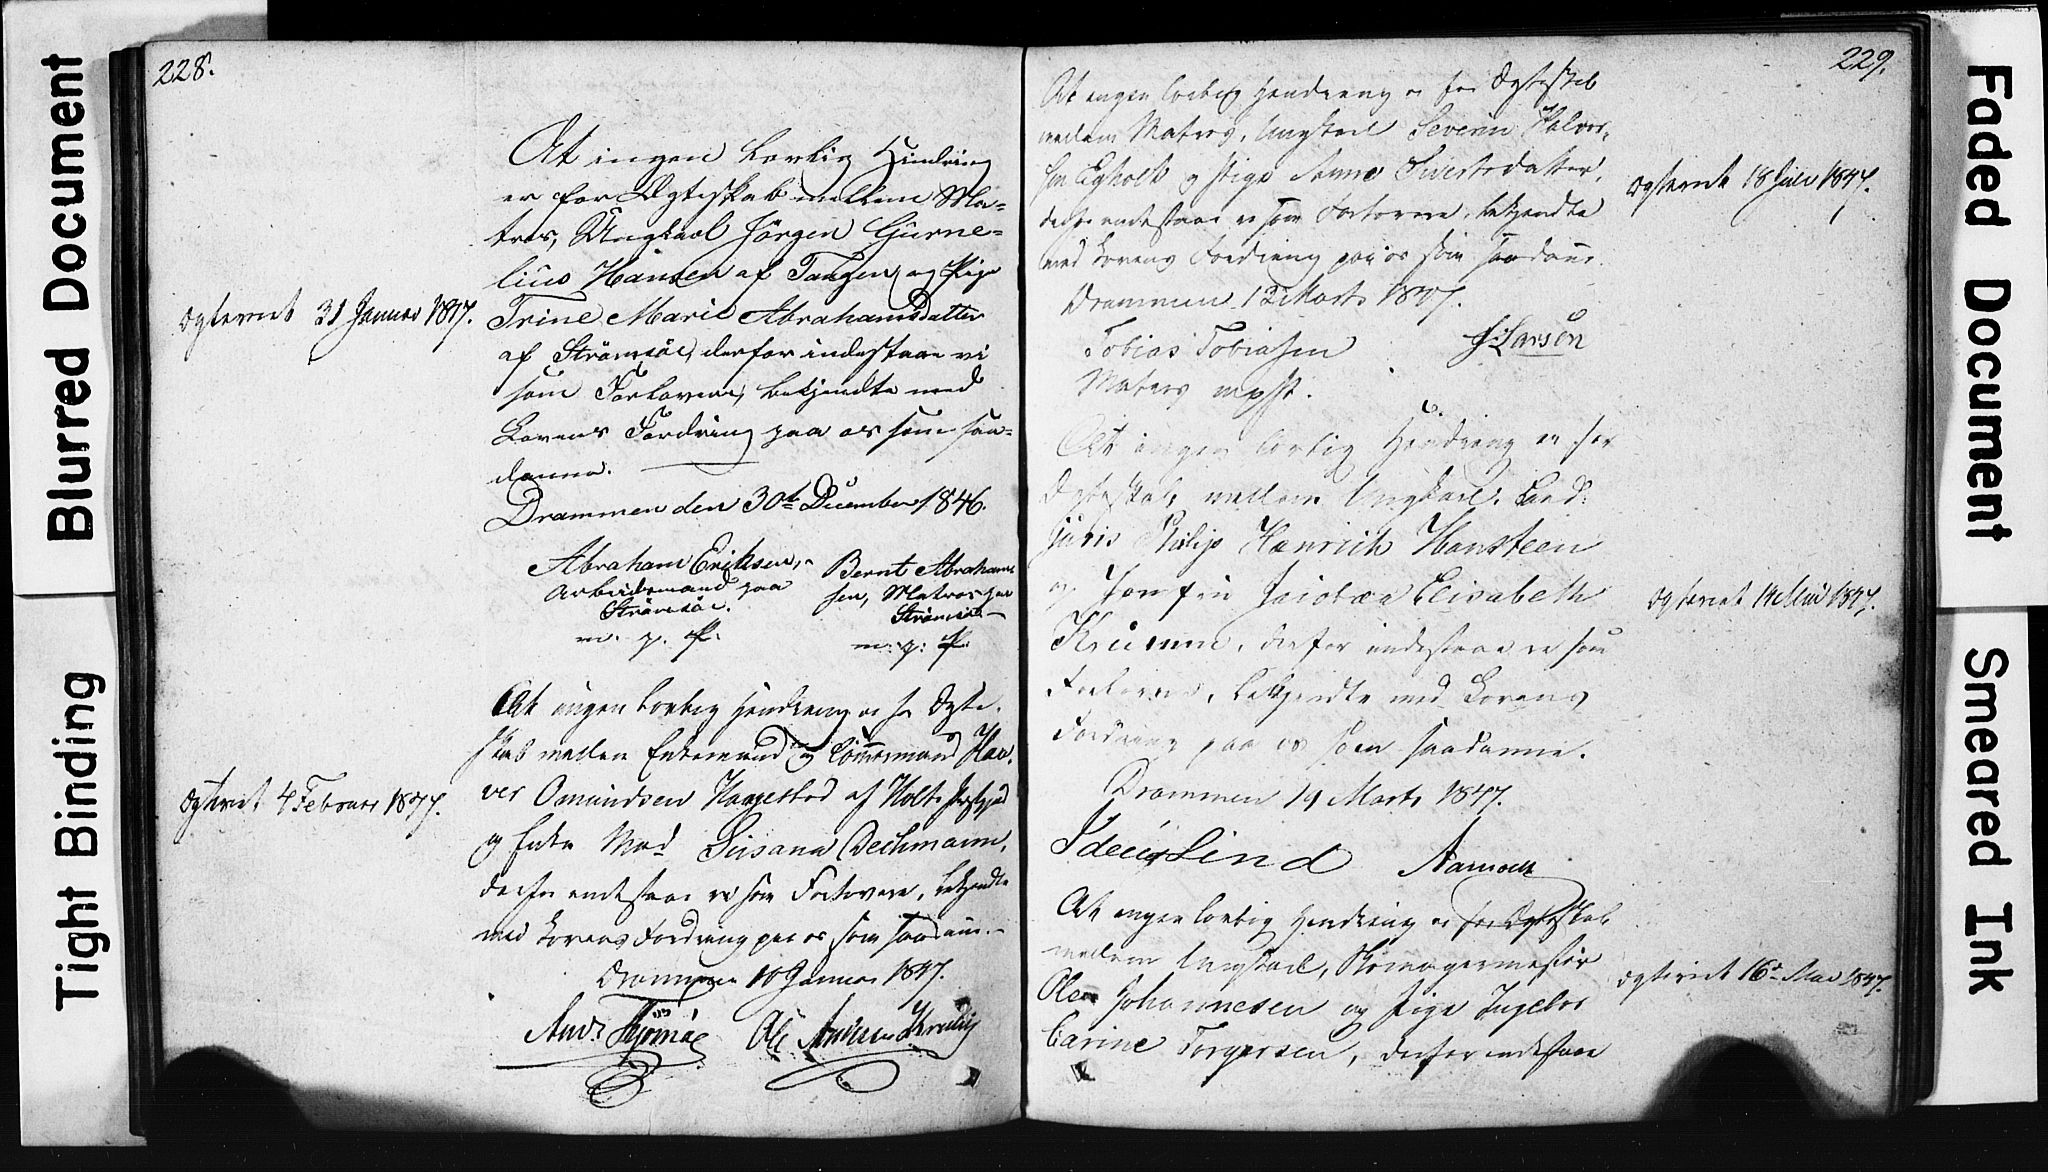 Blurred Document
Tight Binding
228.
At ingen lovlig Hindring
er for Ægteskab mellem Ma-
tros, Ungkarl Jörgen Gurne-
lius Hansen af Tangen og Pige
Trine Marie Abrahamsdatter
af Strömsöe, derfor indestaae vi
som Forlovere, bekjendte med
Lovens Fordring paa os som saa-
danne.
Drammen den 30te December 1846.
Abraham Eriksen,
Arbeidsmand paa
Strömsöe.
m. p. P.
Bernt Abraham-
sen, Matros paa
Strömsöe
m. p. P.
Ægteviet 31 Januar 1847.
At ingen lovlig Hindring er for Ægte-
skab mellem Enkemand og Tömmermand Haa-
ver Omundsen Haugestad af Holts Præstegjeld
og Enke Mad Susana Dechmann,
derfor indestaae vi som Forlovere, bekjendte
med Lovens Fordring paa os som saadanne.
Drammen 10 Januar 1847.
And. Ole Andersen
Ægteviet 4 Februar 1847.
229.
At ingen lovlig Hindring er for Ægteskab
mellem Matros, Ungkarl Severin Halvor-
sen Egholt og Pige Anne Sivertsdatter,
derfor indestaae vi som Forlovere, bekjendte
med Lovens Fordring paa os som saadanne.
Drammen 12 Marts 1847.
Tobias Tobiasen J. Larsen
Matros
Ægteviet 18 Juli 1847.
At ingen lovlig Hindring er for
Ægteskab mellem Ungkarl, Cand:
juris Philip Henrich Hansteen
og Jomfru Jacobæa Elisabeth
Krumm, derfor indestaae vi som
Forlovere, bekjendte med Lovens
Fordring paa os som saadanne.
Drammen 19 Marts 1847.
Lind
Ægteviet 1847.
At ingen lovlig Hindring er for Ægteskab
mellem Ungkarl, Skomagermester
Ole Johannesen og Pige Ingebor
Carine Torgersen, derfor indestaae
Ægteviet 16de Mai 1847.
Faded Document
Smeared Ink